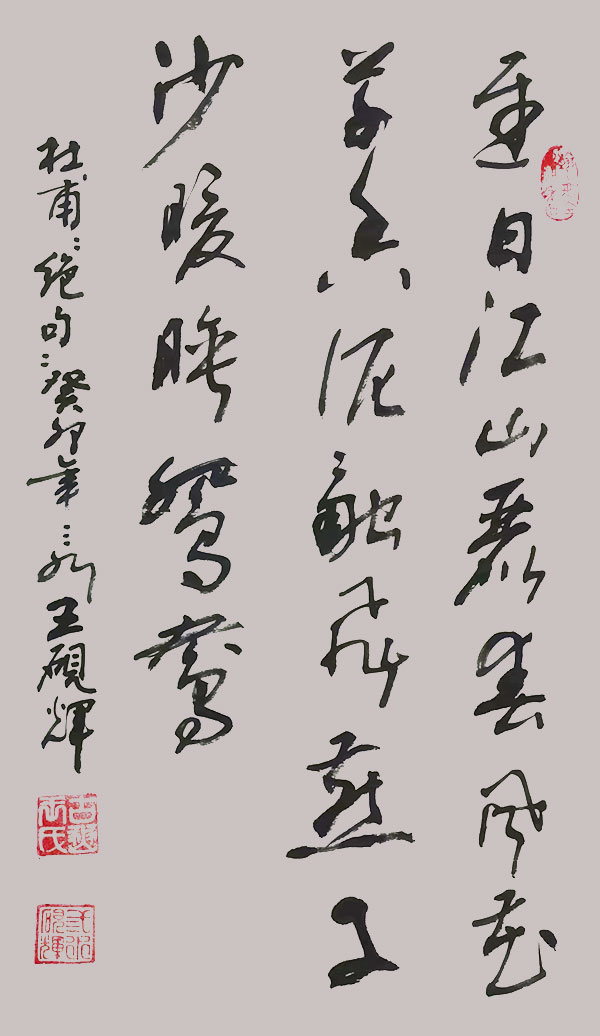 遲日江山麗春風花
草香泥融飛燕子
沙暖睡鴛鴦
杜甫絕句癸卯年王硯輝